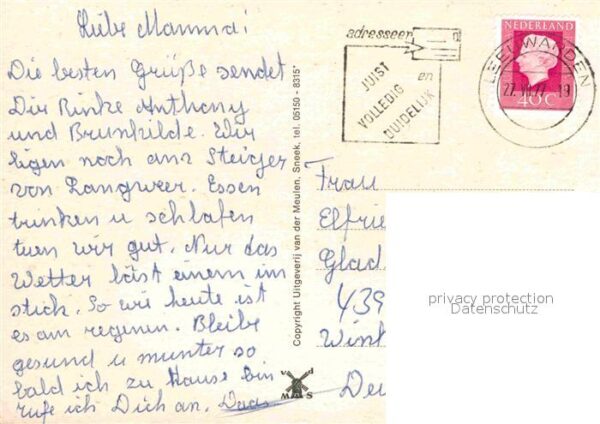 Liebe Mamma!
Die besten Grüße sendet
Dir Rinke Anthony
und Brunhilde. Wir
ligen noch am Steiger
von Langweer. Essen
trinken u schlafen
tuen wir gut. Nur das
Wetter läst einem im
stich. So wie heute ist
es am regenen. Bleibe
gesund u munter so
bald ich zu Hause bin
rufe ich Dich an.
Copyright Uitgeverij van der Meulen, Sneek, tel. 05150 - 8315*
adresseer
JUIST
VOLLEDIG
en
DUIDELIJK
NEDERLAND
40c
LEEUWARDEN
27.VII.77 19
Frau
Elfrie
Glad
439
Wint
Deu
v d
M S
privacy protection
Datenschutz